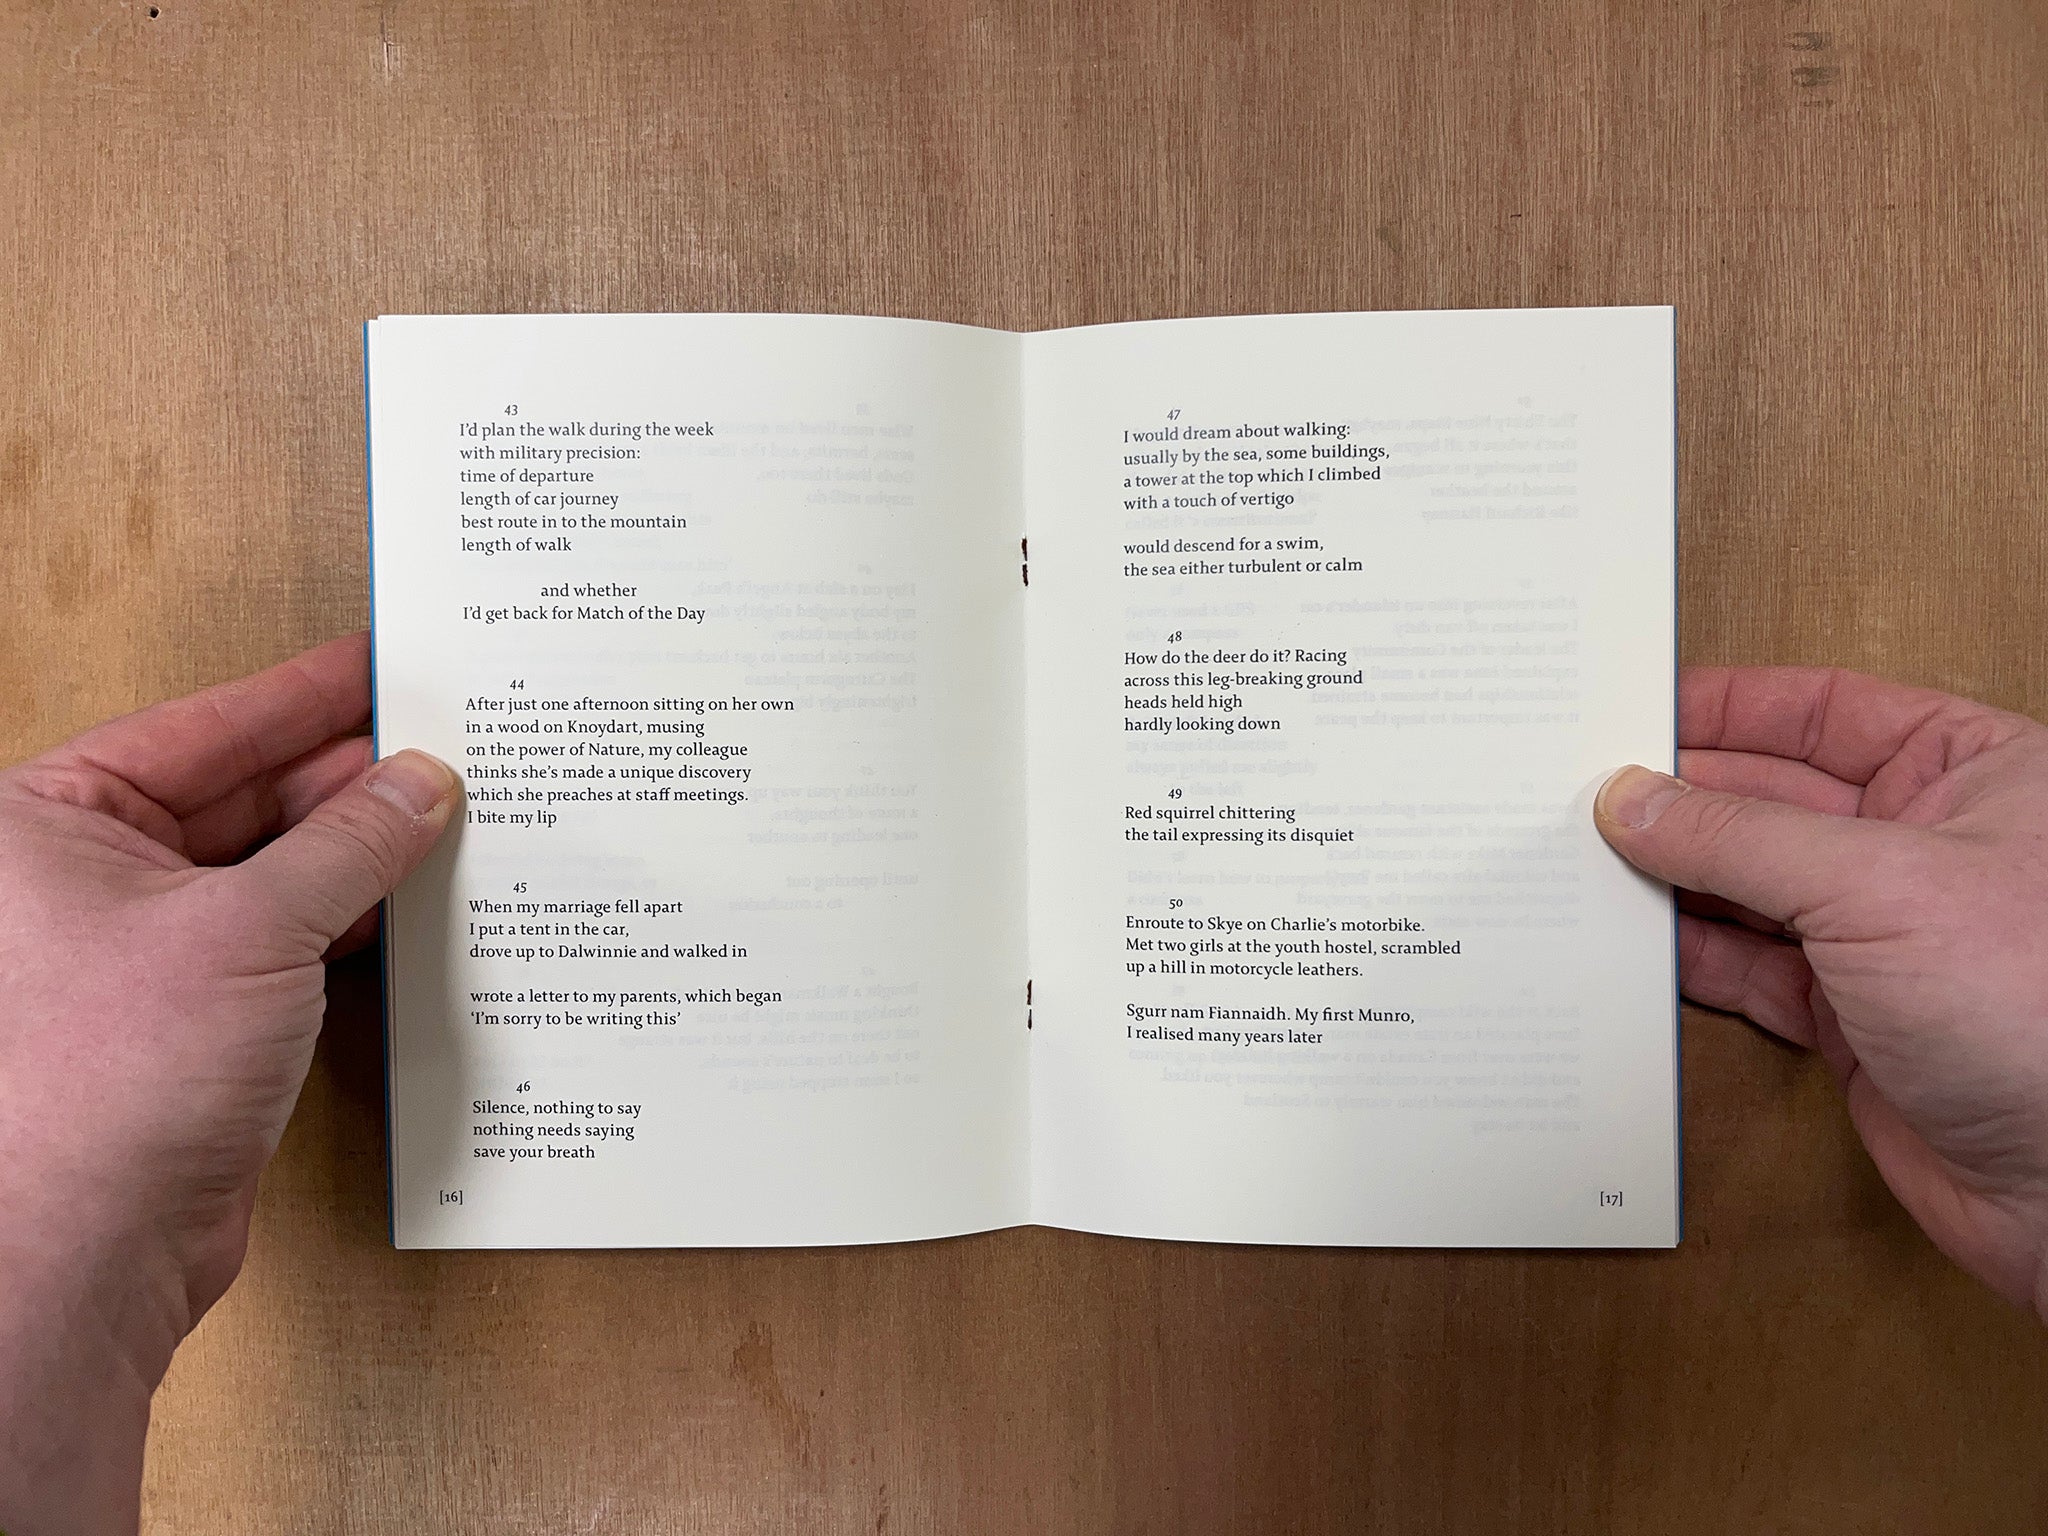 43
I'd plan the walk during the week
with military precision:
time of departure
length of car journey
best route in to the mountain
length of walk
and whether
I'd get back for Match of the Day
44
After just one afternoon sitting on her own
in a wood on Knoydart, musing
on the power of Nature, my colleague
thinks she's made a unique discovery
which she preaches at staff meetings.
I bite my lip
45
When my marriage fell apart
I put a tent in the car,
drove up to Dalwinnie and walked in
wrote a letter to my parents, which began
‘I'm sorry to be writing this’
46
Silence, nothing to say
nothing needs saying
save your breath
[16]
47
I would dream about walking:
usually by the sea, some buildings,
a tower at the top which I climbed
with a touch of vertigo
would descend for a swim,
the sea either turbulent or calm
48
How do the deer do it? Racing
across this leg-breaking ground
heads held high
hardly looking down
49
Red squirrel chittering
the tail expressing its disquiet
50
Enroute to Skye on Charlie's motorbike.
Met two girls at the youth hostel, scrambled
up a hill in motorcycle leathers.
Sgurr nam Fiannaidh. My first Munro,
I realised many years later
[17]